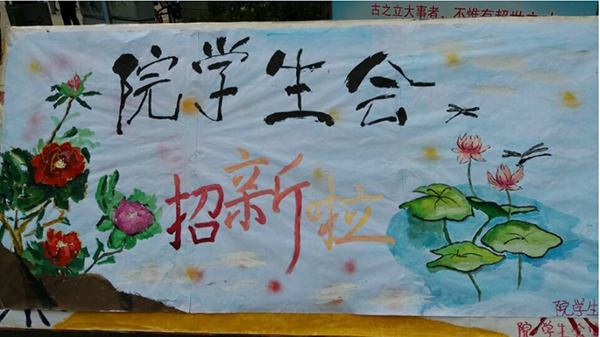 古之立大事者，不惟有超世之
院学生会
招新啦
院学生
院学生会